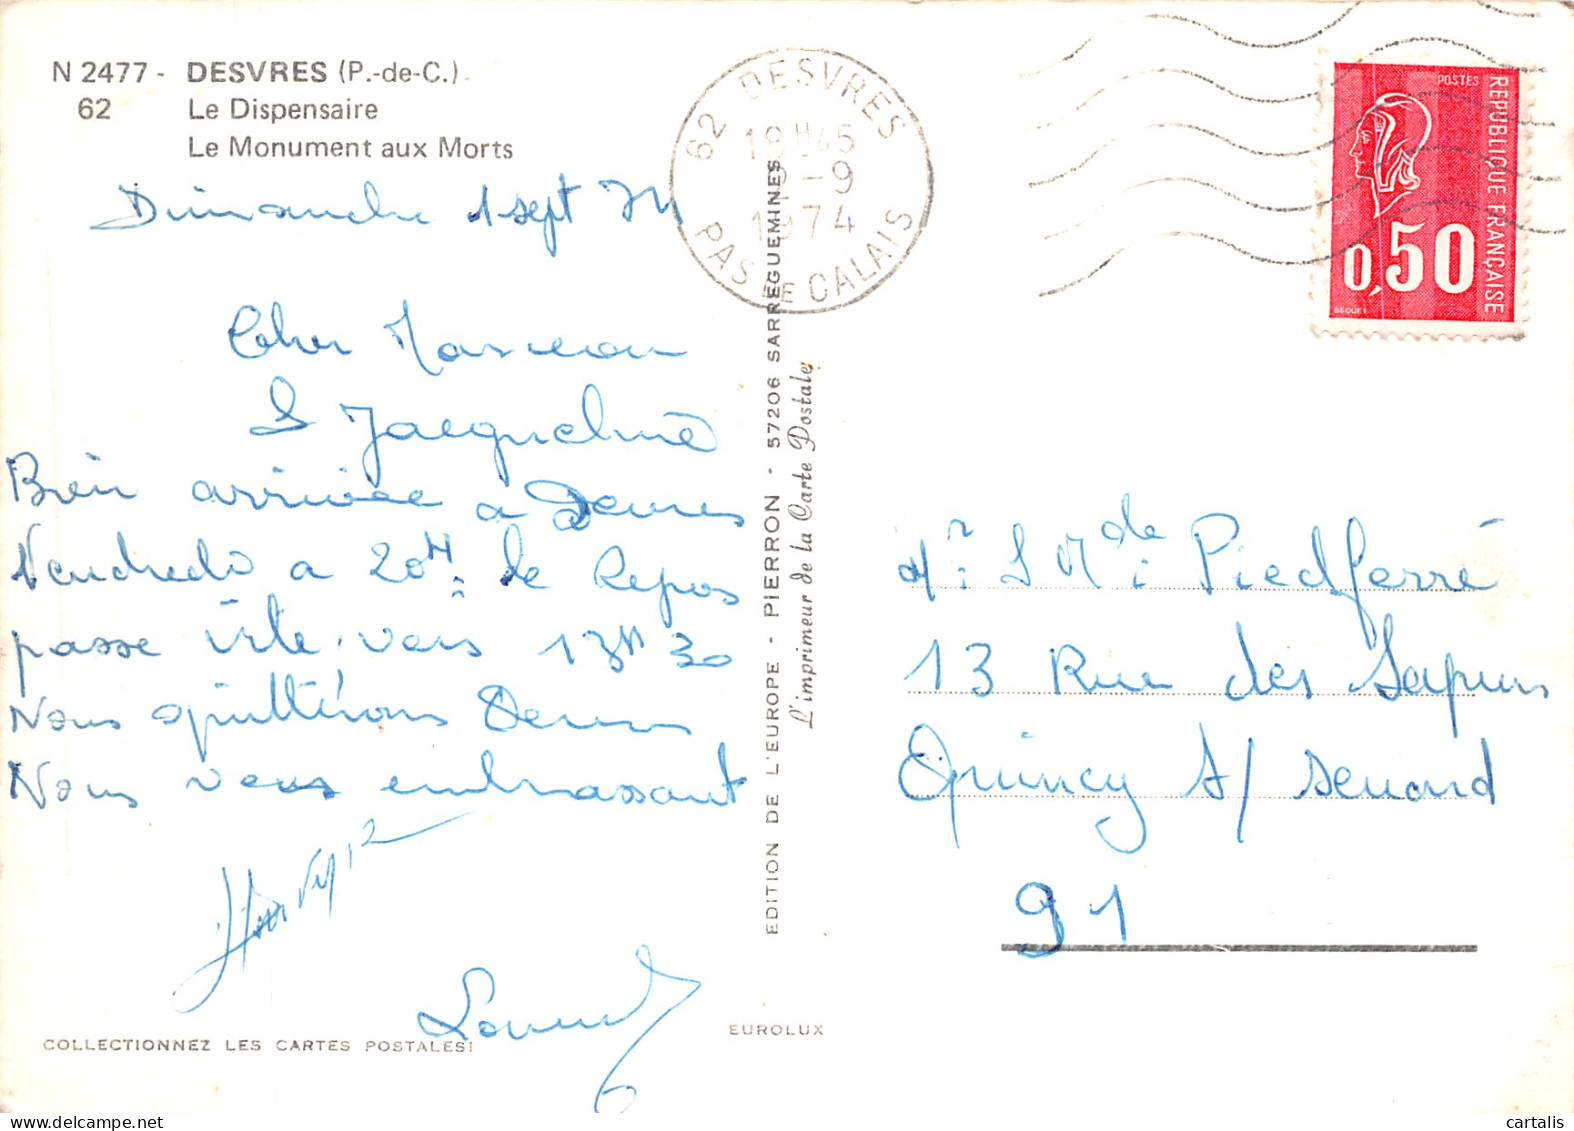 N 2477 - DESVRES (P.-de-C.)
62 Le Dispensaire
Le Monument aux Morts
Dimanche 1 sept 74
62 DESVRES
18H45
-9
1974
PAS DE CALAIS
POSTES
REPUBLIQUE FRANÇAISE
0,50
BEQUET
Cher Marceau
& Jacqueline
Bien arrivée a Desvres
Vendredi a 20H. le Repos
passe vite. vers 13H30
Nous quitterons Desvres
Nous vous embrassant
EDITION DE L'EUROPE - PIERRON - 57206 SARREGUEMINES
L'imprimeur de la Carte Postale
Mr. & Mde Piedferré
13 Rue des Sapins
Quincy s/ senard
91
COLLECTIONNEZ LES CARTES POSTALES!
EUROLUX
cartalis